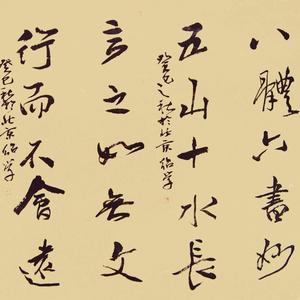 八體六書妙
五山十水長
癸巳之秋於北京紹学
言之如無文
行而不會遠
癸巳秋於北京紹学